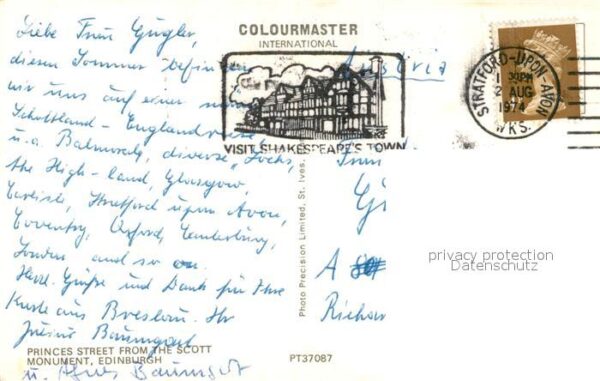 COLOURMASTER
INTERNATIONAL
Liebe Frau Gugler,
diesen Sommer befinden
wir uns auf einer
Schottland - England
u.a. Balmoral, diverse Lochs,
the High-land, Glasgow,
Carlisle, Stratford upon Avon,
Coventry, Oxford, Canterbury,
London and so on.
Herzl. Grüße und Dank für Ihre
Karte aus Breslau. Ihr
Baumgart
u. Agnes Baumgart
VISIT SHAKESPEARE'S TOWN
STRATFORD-UPON-AVON
30PM
2 AUG
1974
WKS.
Austria
Frau
A
privacy protection
Datenschutz
Photo Precision Limited, St. Ives,
PRINCES STREET FROM THE SCOTT
MONUMENT, EDINBURGH
PT37087